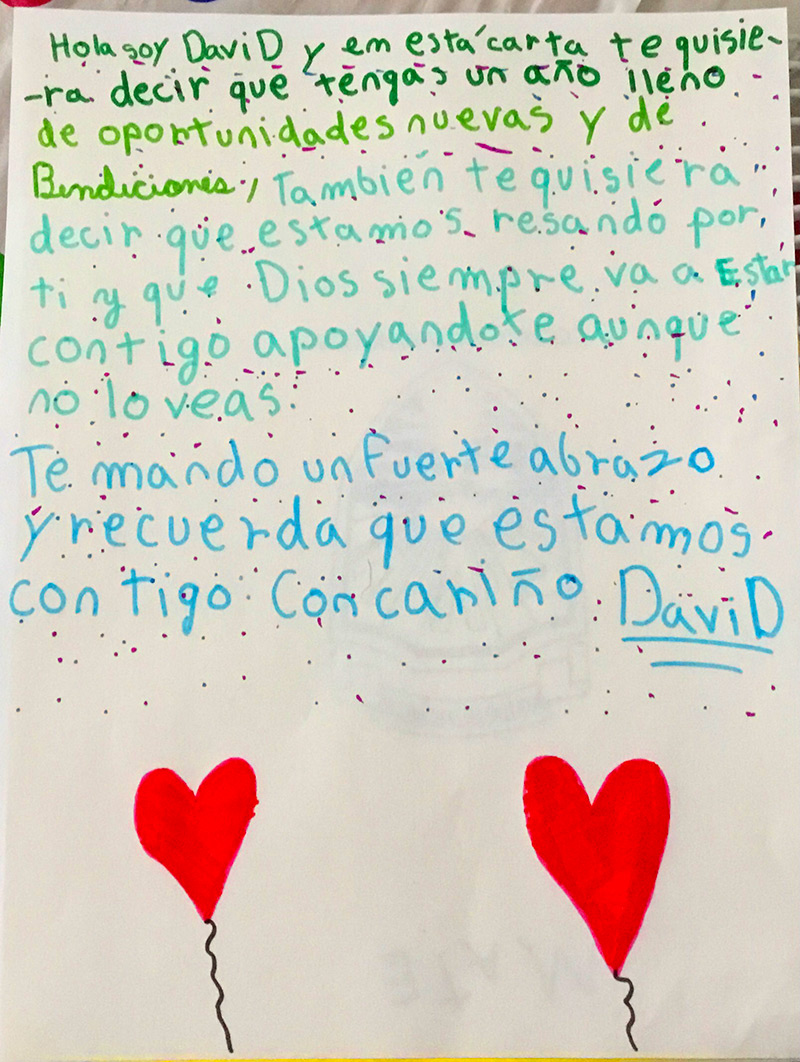 Hola soy DaviD y em está carta te quisie-
-ra decir que tengas un año lleno
de oportunidades nuevas y de
Bendiciones, También te quisiera
decir que estamos resando por
ti y que Dios siempre va a Estar
contigo apoyandote aunque
no lo veas.
Te mando un fuerte abrazo
y recuerda que estamos
contigo Con cariño DaviD